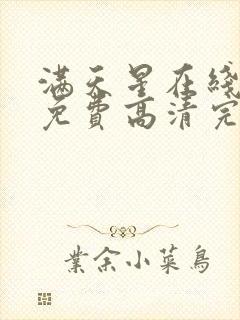 满天星在线
免费高清完
業余小菜鳥